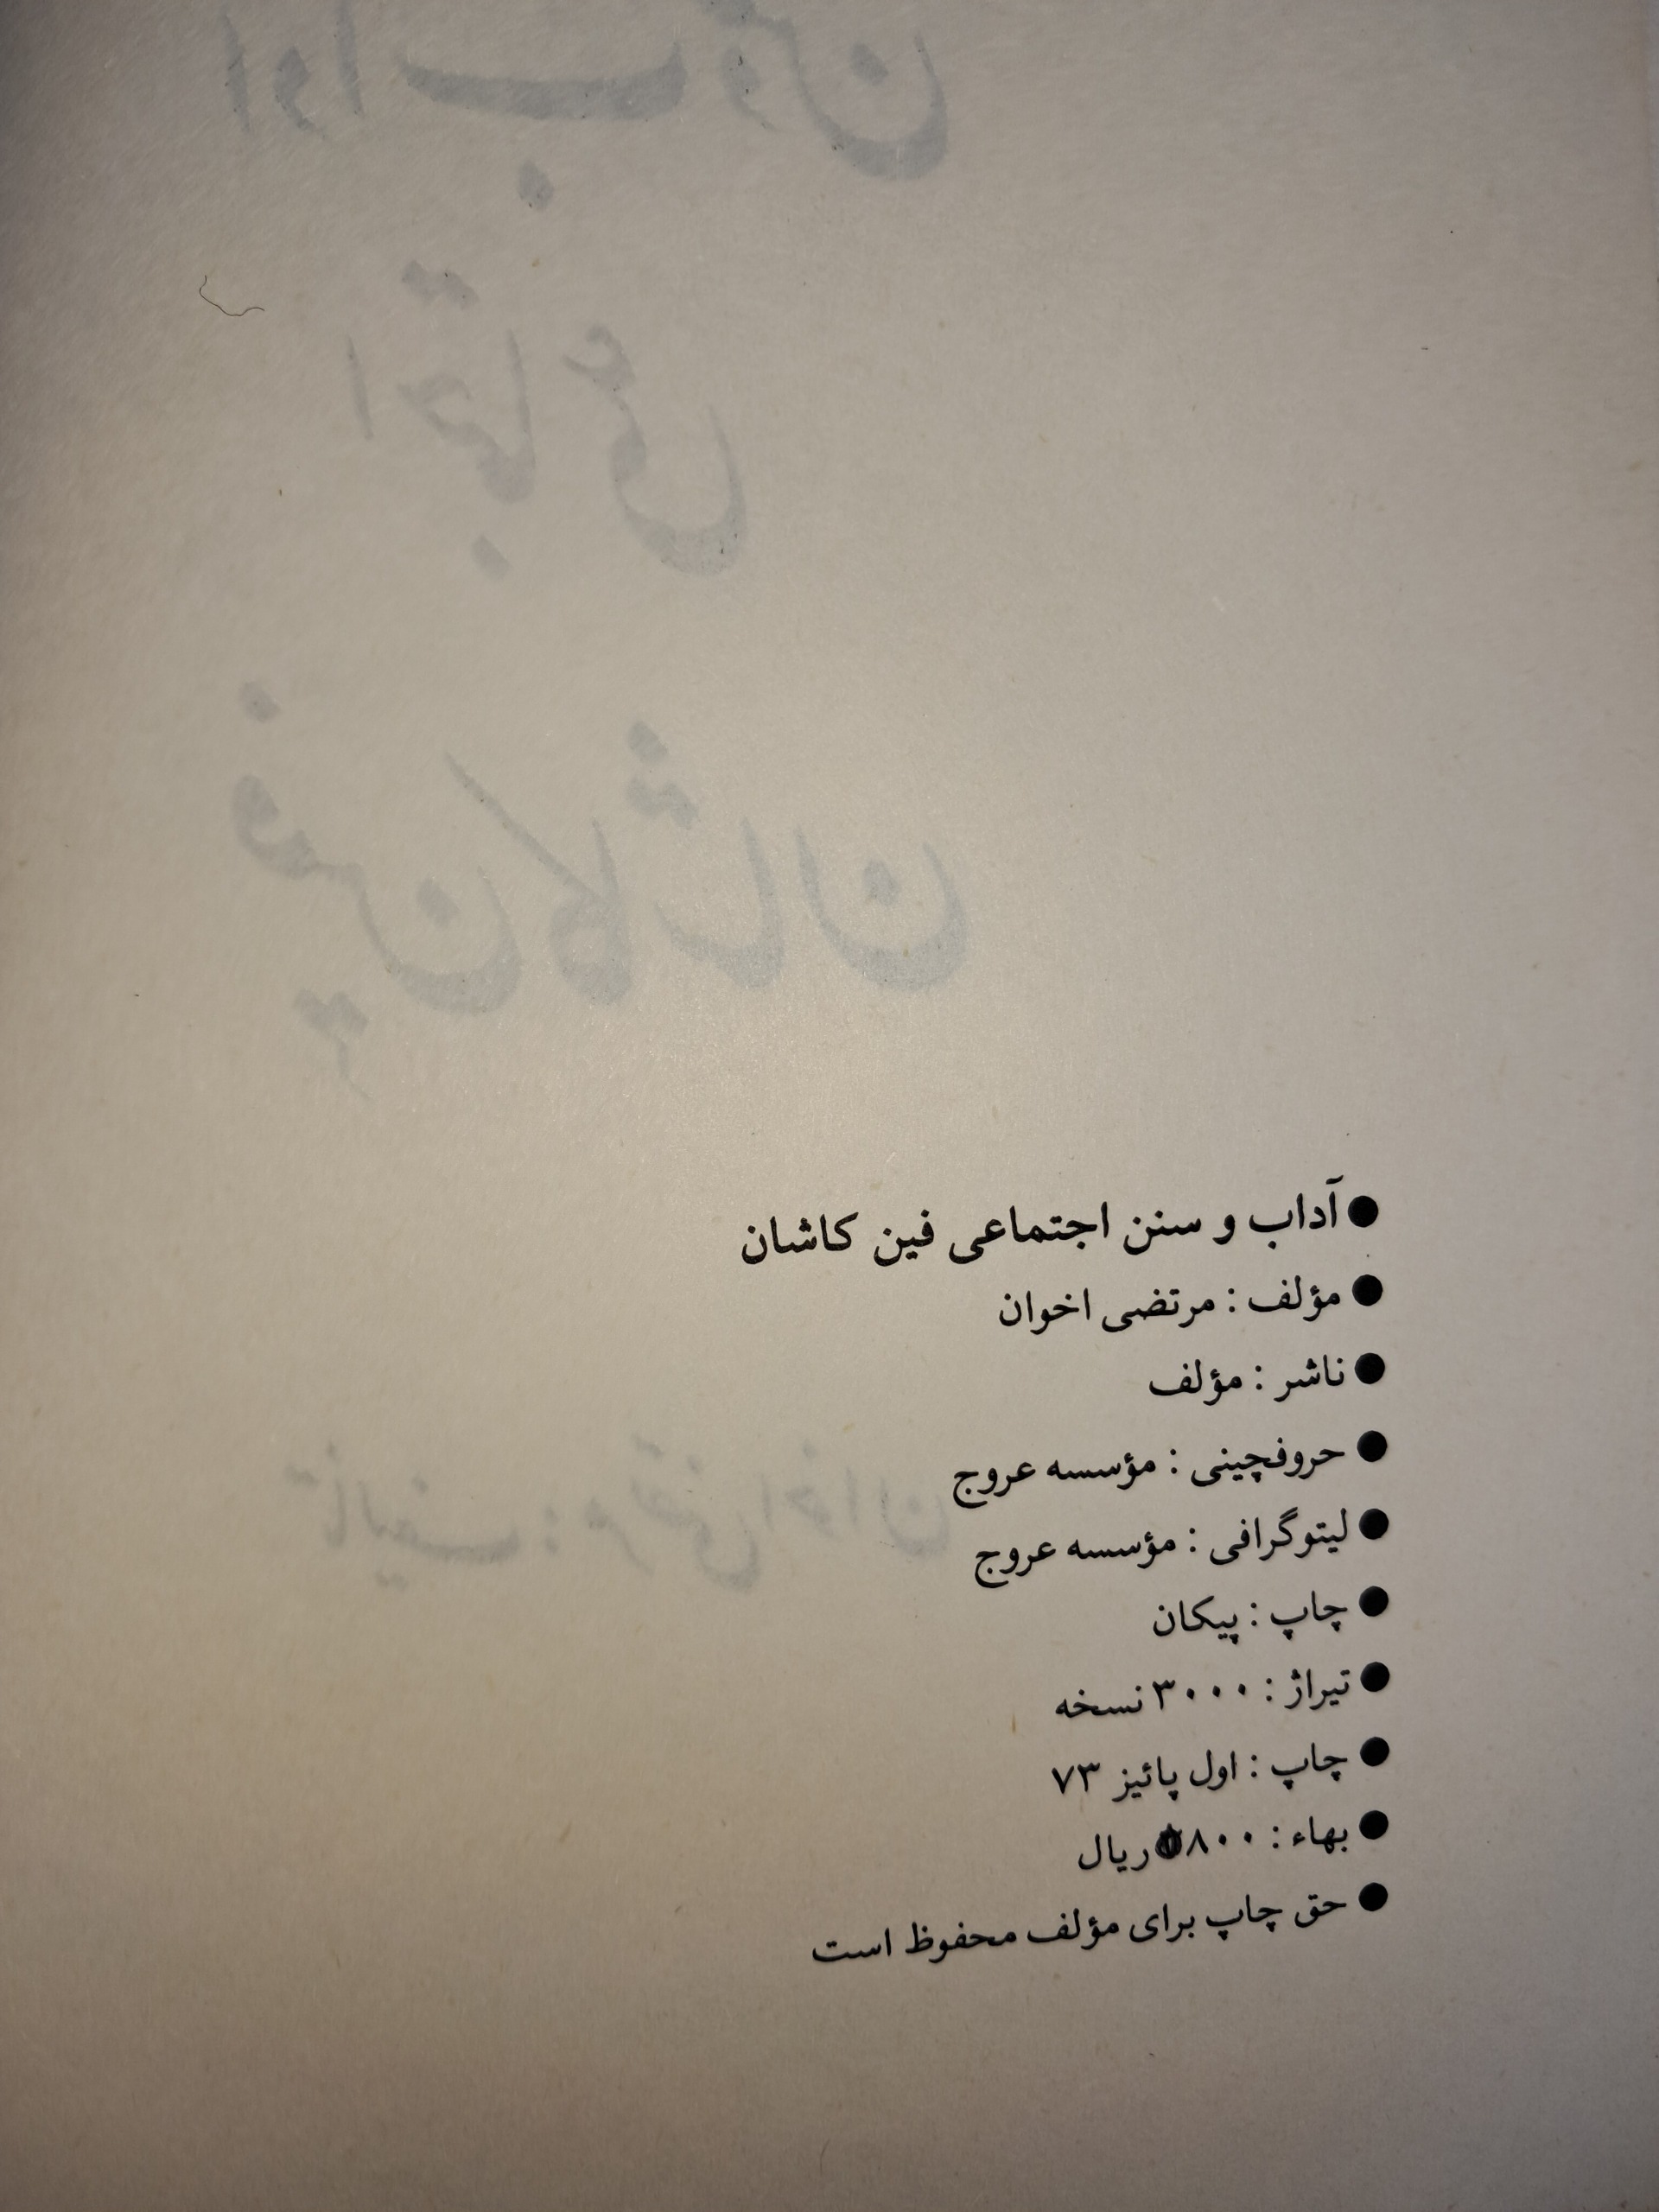 ● آداب و سنن اجتماعی فین کاشان
● مؤلف : مرتضی اخوان
● ناشر : مؤلف
● حروفچینی : مؤسسه عروج
● لیتوگرافی : مؤسسه عروج
● چاپ : پیکان
● تیراژ : ۳۰۰۰ نسخه
● چاپ : اول پائیز ۷۳
● بهاء : ۸۰۰ ریال
● حق چاپ برای مؤلف محفوظ است